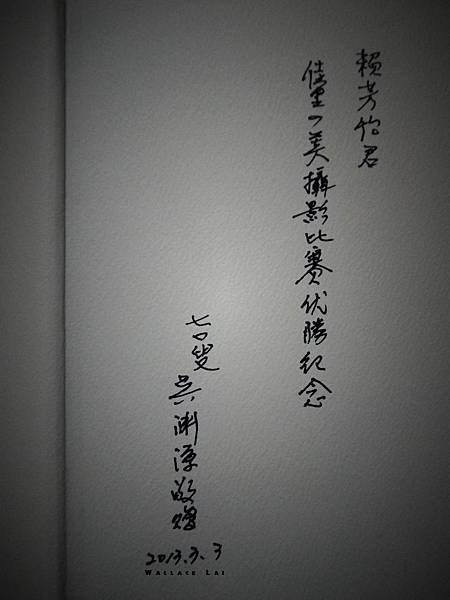 賴芳怡君
佳里の美攝影比賽优勝紀念
七〇叟 吳渊源敬贈
2013.3.3
WALLACE LAI